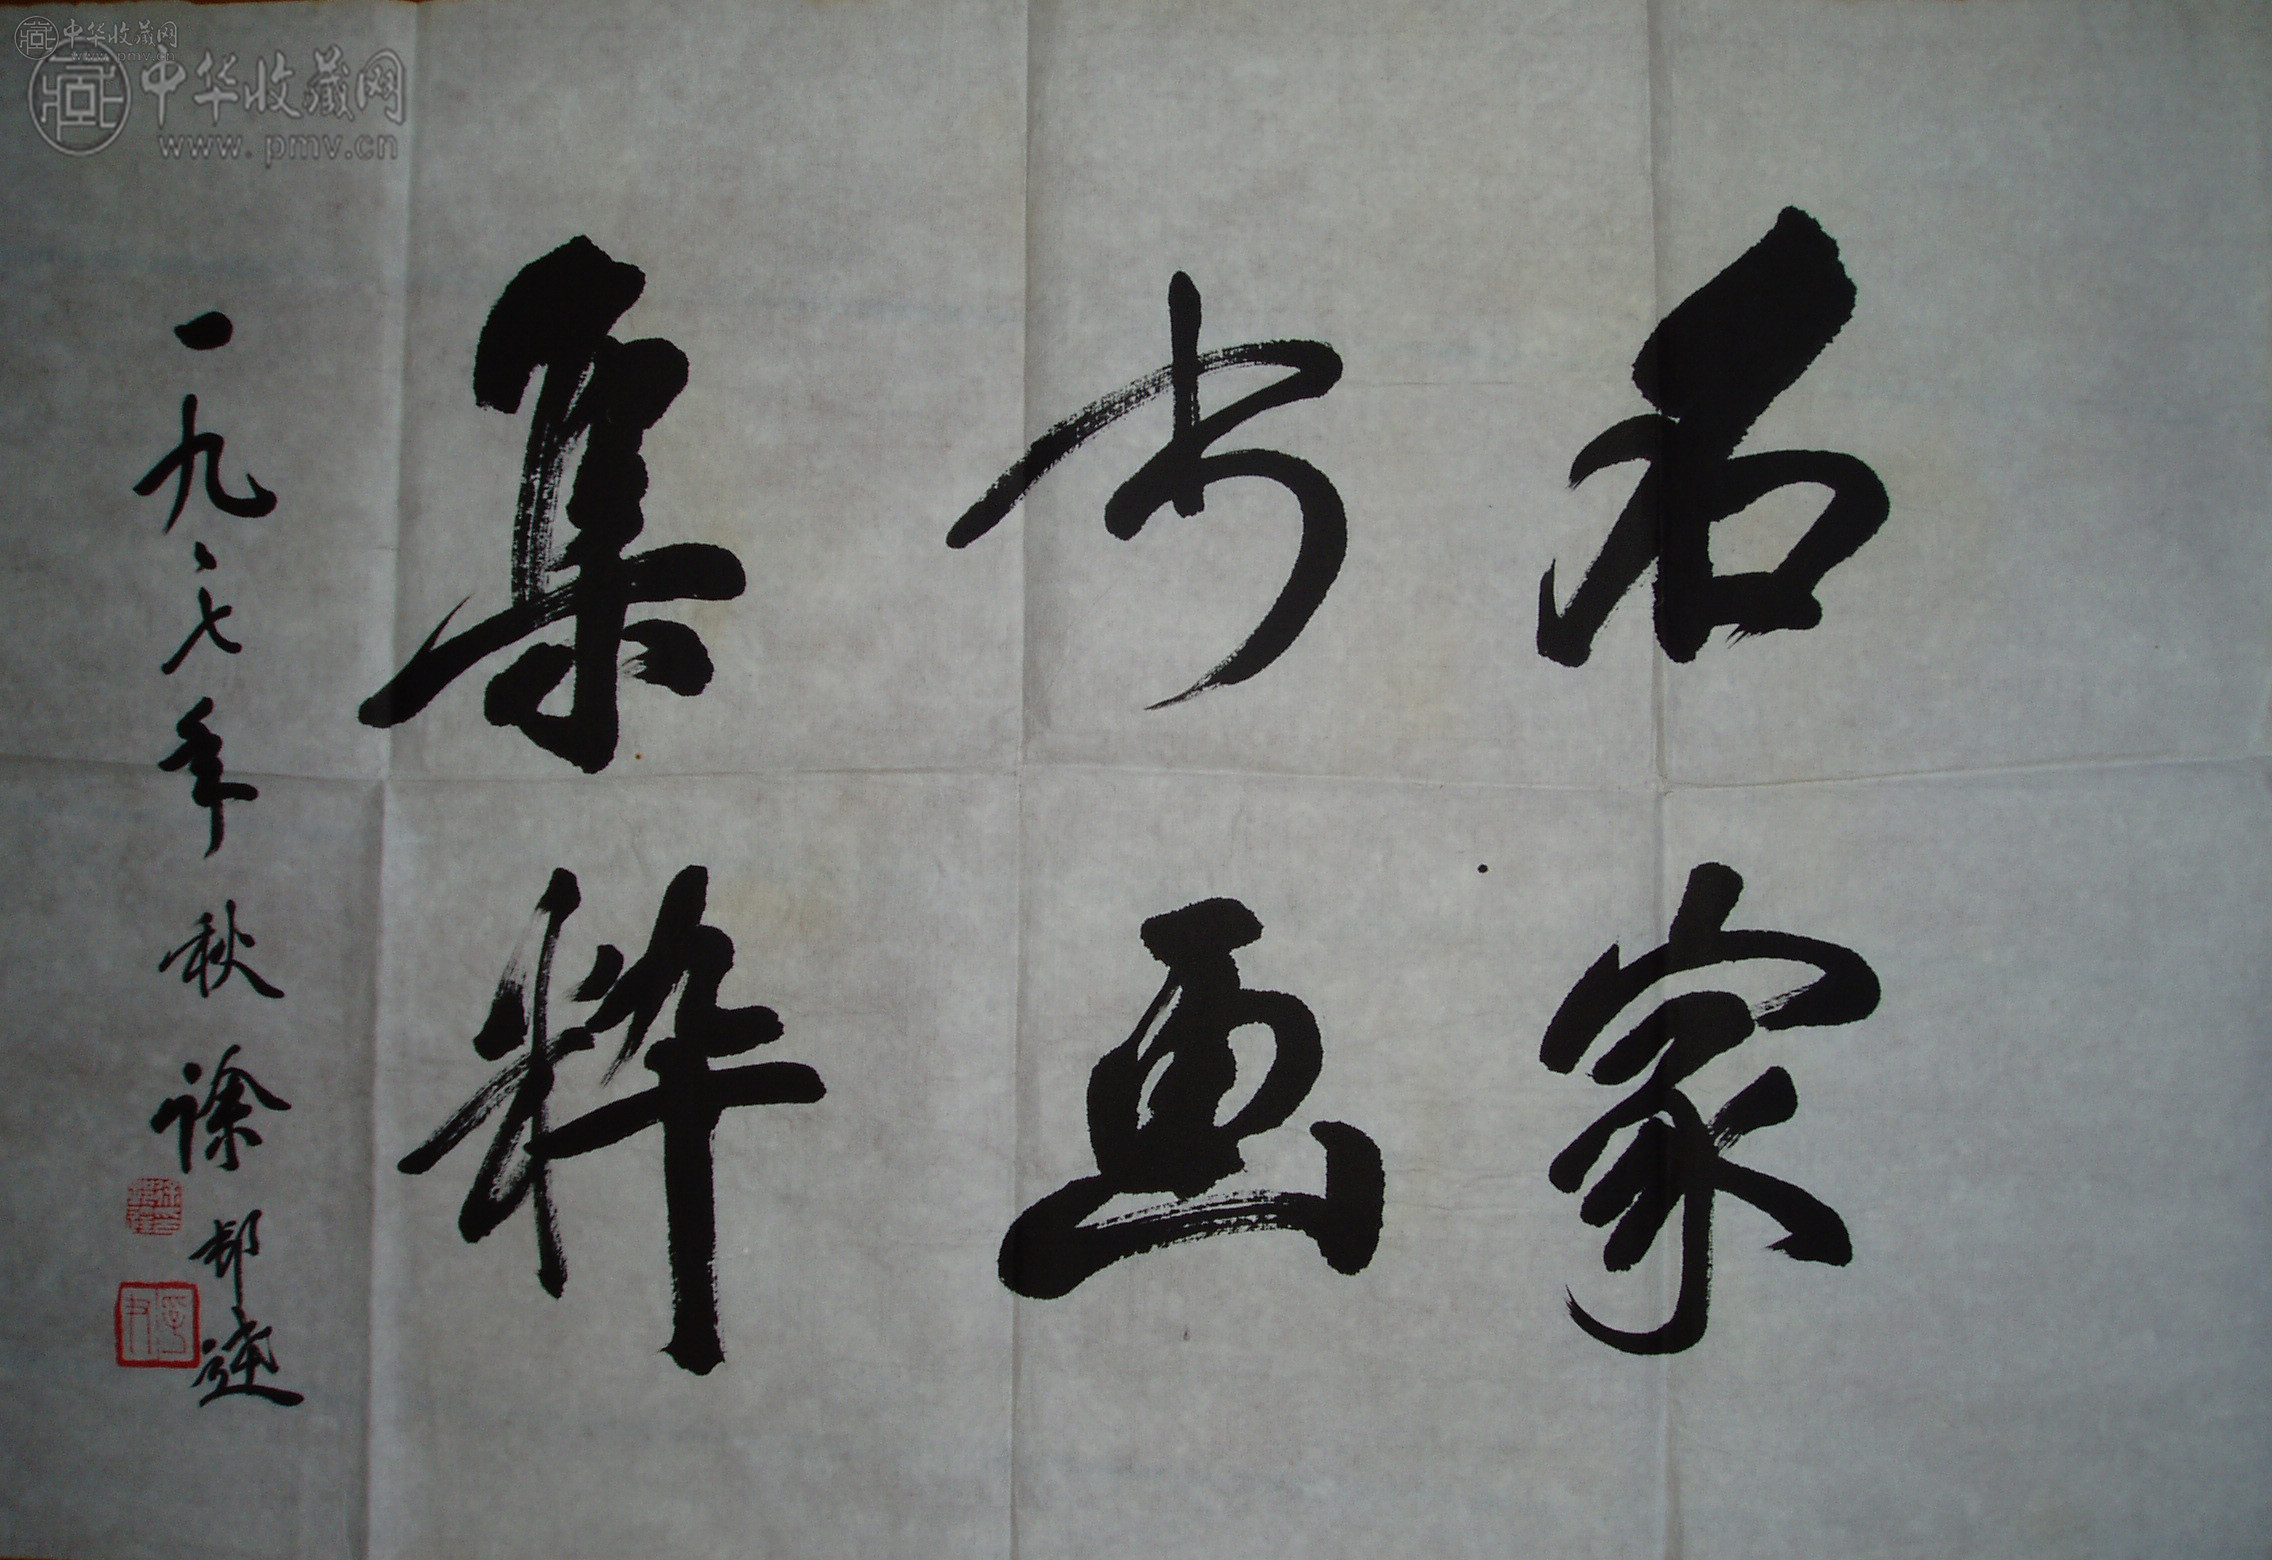 名家
书画
集粹
一九八七年秋 徐邦达
中华收藏网
www.pmv.cn
中华收藏网
www.pmv.cn